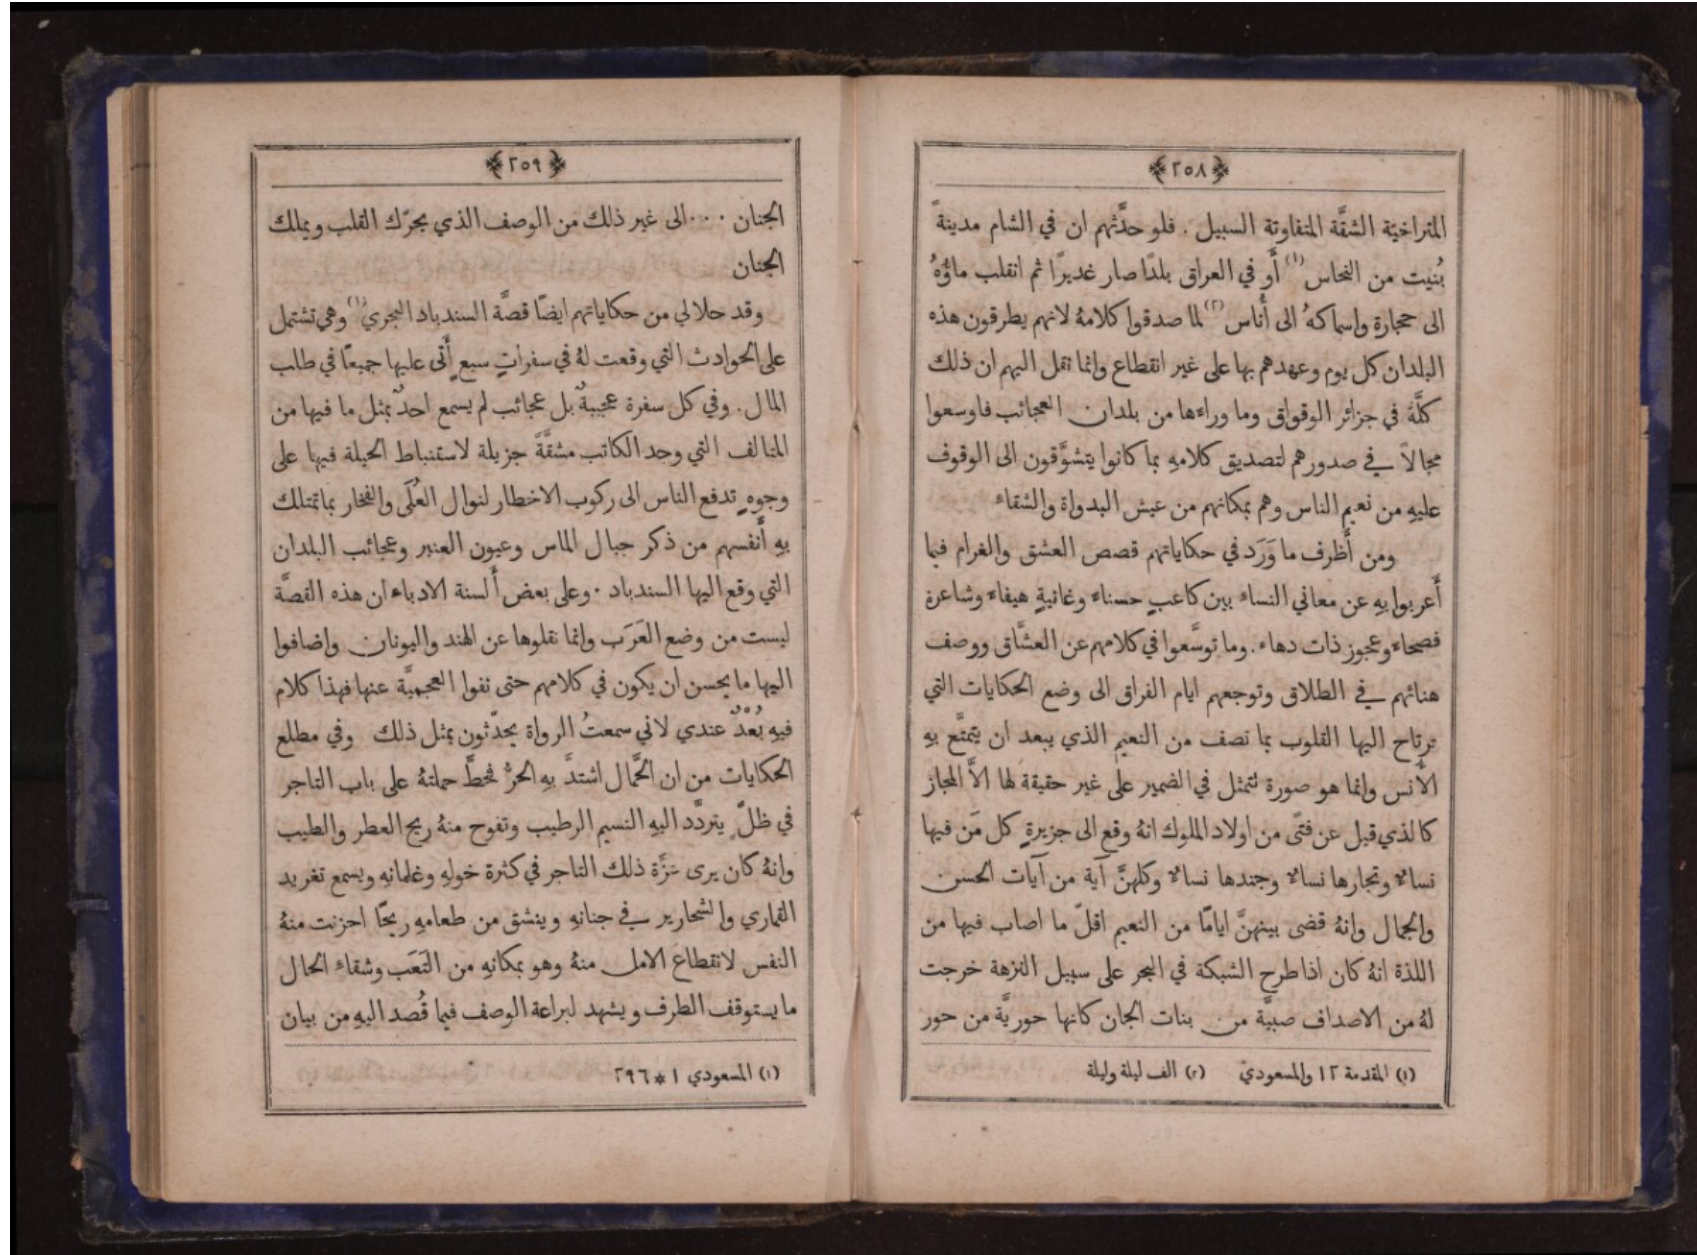 ﴿٢٥٨﴾
المتراخية الشقَّة المتفاوتة السبيل . فلو حدَّثتهم ان في الشام مدينةً
بُنيت من النحاس (١) أَو في العراق بلدًا صار غديرًا ثم انقلب ماؤُهُ
الى حجارة واسماكهُ الى أُناس (٢) لما صدقوا كلامهُ لانهم يطرقون هذه
البلدان كل يوم وعهدهم بها على غير انقطاع وانما نقل اليهم ان ذلك
كلَّهُ في جزائر الوقواق وما وراءها من بلدان العجائب فاوسعوا
مجالاً في صدورهم لتصديق كلامهِ بما كانوا يتشوَّقون الى الوقوف
عليهِ من نعيم الناس وهم بمكانهم من عيش البدواة والشقاء
ومن أَظرف ما وَرَد في حكاياتهم قصص العشق والغرام فيما
أَعربوا بهِ عن معاني النساء بين كاعبٍ حسناء وغانيةٍ هيفاء وشاعرة
فصحاء وعجوز ذات دهاء . وما توسَّعوا في كلامهم عن العشَّاق ووصف
هنائهم في الطلاق وتوجعهم ايام الفراق الى وضع الحكايات التي
ترتاح اليها القلوب بما تصف من النعيم الذي يبعد ان يتمتَّع بهِ
الأنس وانما هو صورة لتمثل في الضمير على غير حقيقة لها الاَّ المجاز
كالذي قيل عن فتًى من اولاد الملوك انهُ وقع الى جزيرةٍ كل مَن فيها
نساءٌ وتجارها نساءٌ وجندها نساءٌ وكلهنَّ آية من آيات الحسن
والجمال وانهُ قضى بينهنَّ ايامًا من النعيم اقلّ ما اصاب فيها من
اللذة انهُ كان اذا طرح الشبكة في البحر على سبيل النزهة خرجت
لهُ من الاصداف صبيَّة من بنات الجان كانها حوريَّة من حور
(١) المقدمة ١٢ والمسعودي (٢) الف ليلة وليلة
﴿٢٥٩﴾
الجنان . . . الى غير ذلك من الوصف الذي يحرّك القلب ويملك
الجنان
وقد حلا لي من حكاياتهم ايضًا قصَّة السندباد البحري (١) وهي تشتمل
على الحوادث التي وقعت لهُ في سفراتٍ سبعٍ أَتى عليها جميعًا في طلب
المال . وفي كل سفرة عجيبةٌ بل عجائب لم يسمع احدٌ بمثل ما فيها من
المتالف التي وجد الكاتب مشقَّةً جزيلة لاستنباط الحيلة فيها على
وجوهٍ تدفع الناس الى ركوب الاخطار لنوال العُلَى والفخار بما تمتلك
بهِ أَنفسهم من ذكر جبال الماس وعيون العنبر وعجائب البلدان
التي وقع اليها السندباد . وعلى بعض أَلسنة الادباء ان هذه القصَّة
ليست من وضع العَرَب وانما نقلوها عن الهند واليونان واضافوا
اليها ما يحسن ان يكون في كلامهم حتى نفوا العجميَّة عنها فهذا كلام
فيهِ بُعْدٌ عندي لاني سمعتُ الرواة يحدّثون بمثل ذلك وفي مطلع
الحكايات من ان الحَّمال اشتدَّ بهِ الحرُّ فحطَّ حملتهُ على باب التاجر
في ظلّ يتردَّد اليهِ النسيم الرطيب وتفوح منهُ ريح العطر والطيب
وانهُ كان يرى عزَّة ذلك التاجر في كثرة خولهِ وغلمانهِ ويسمع تغريد
القماري والشحارير في جنانهِ وينشق من طعامهِ ريحًا احزنت منهُ
النفس لانقطاع الامل منهُ وهو بمكانهِ من التَعَب وشقاء الحال
ما يستوقف الطرف ويشهد لبراعة الوصف فيما قُصد اليهِ من بيان
(١) المسعودي ١ * ٢٩٦